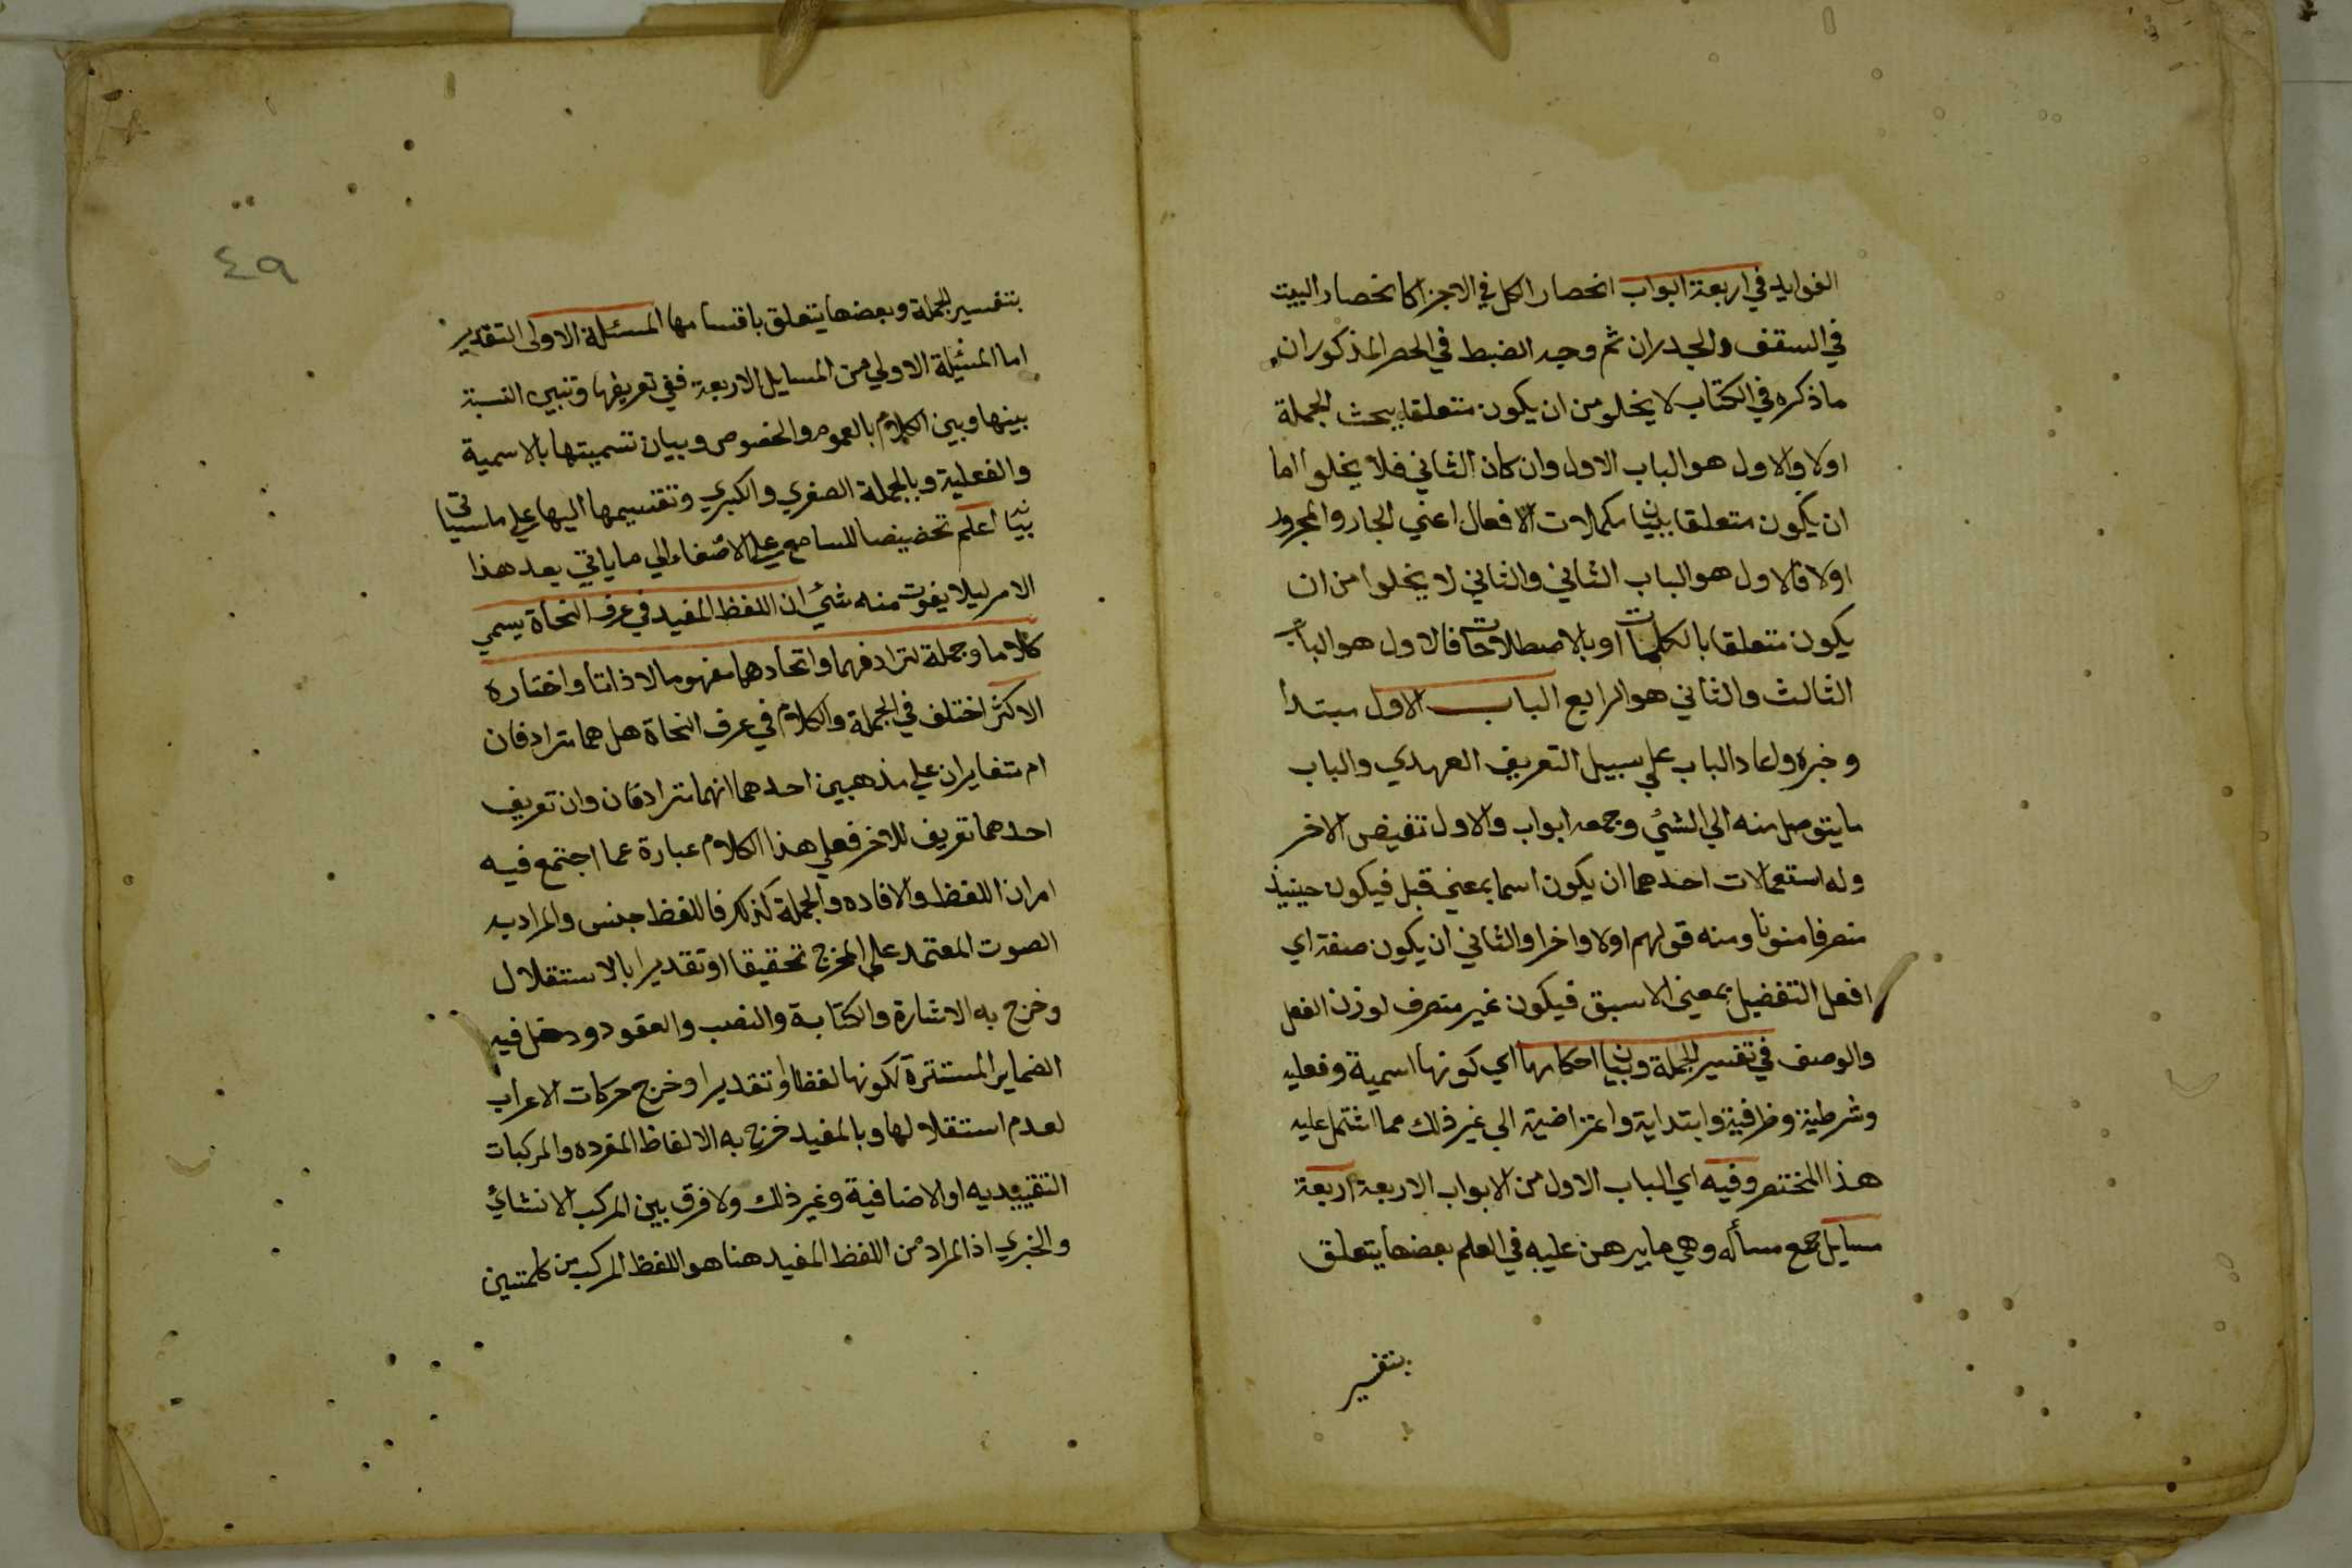 الفوايد في اربعة ابواب انحصار الكل في الاجزا كانحصار البيت
في السقف والجدران ثم وجه الضبط في الحصر المذكور ان
ما ذكره في الكتاب لا يخلو من ان يكون متعلقا ببحث الجملة
اولا والاول هو الباب الاول وان كان الثاني فلا يخلوا اما
ان يكون متعلقا ببيان مكملات الافعال اعني الجار والمجرور
اولا فالاول هو الباب الثاني والثاني لا يخلوا من ان
يكون متعلقا بالكلمات او بالاصطلاحات فالاول هو الباب
الثالث والثاني هو الرابع الباب الاول مبتدا
وخبره واعاد الباب علي سبيل التعريف العهدي والباب
ما يتوصل منه الي الشئ وجمعه ابواب والاول نقيض الاخر
وله استعمالات احدهما ان يكون اسما بمعني قبل فيكون حينيذ
منصرفا منونا ومنه قولهم اولا واخرا والثاني ان يكون صفة اي
افعل التفضيل بمعني الاسبق فيكون غير منصرف لوزن الفعل
والوصف في تفسير الجملة وبيان احكامها اي كونها اسمية وفعليه
وشرطية وظرفية وابتداية واعتراضية الي غير ذلك مما اشتمل عليه
هذا المختصر وفيه اي الباب الاول من الابواب الاربعة اربعة
مسايل جمع مسأله وهي ما يبرهن عليه في العلم بعضها يتعلق
بتفسير
٤٩
بتفسير الجملة وبعضها يتعلق باقسامها المسئلة الاولي التقدير
اما المسئلة الاولي من المسايل الاربعة ففي تعريفها وتبيين النسبة
بينها وبين الكلام بالعموم والخصوص وبيان تسميتها بالاسمية
والفعلية وبالجملة الصغري والكبري وتقسيمها اليها علي ما سياتي
بيانه اعلم تحضيضا للسامع علي الاصغاء الي ما ياتي بعد هذا
الامر ليلا يفوت منه شئ ان اللفظ المفيد في عرف النحاة يسمي
كلاما وجملة لترادفهما واتحادهما مفهوما لا ذاتا واختاره
الاكثر اختلف في الجملة والكلام في عرف النحاة هل هما مترادفان
ام متغايران علي مذهبين احدهما انهما مترادفان وان تعريف
احدهما تعريف للاخر فعلي هذا الكلام عبارة عما اجتمع فيه
امران اللفظ والافاده والجملة كذلك فاللفظ جنس والمراد به
الصوت المعتمد علي المخرج تحقيقا او تقديرا بالاستقلال
وخرج به الاشارة والكتابة والنصب والعقود ودخل فيه
الضماير المستترة لكونها لفظا او تقديرا وخرج حركات الاعراب
لعدم استقلالها وبالمفيد خرج به الالفاظ المفرده والمركبات
التقييديه او الاضافية وغير ذلك ولا فرق بين المركب الانشائي
والخبري اذ المراد من اللفظ المفيد هنا هو اللفظ المركب من كلمتين